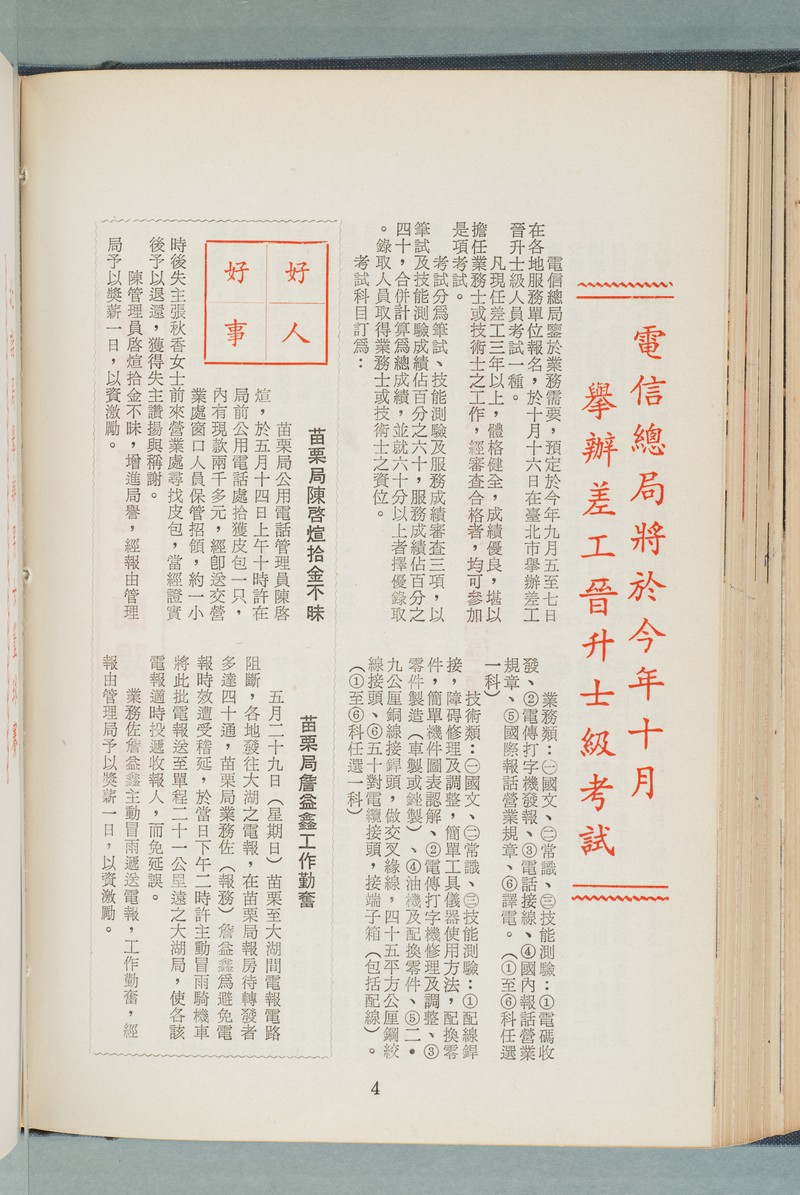 電信總局將於今年十月
舉辦差工晉升士級考試
電信總局鑒於業務需要，預定於今年九月五至七日
在各地服務單位報名，於十月十六日在臺北市舉辦差工
晉升士級人員考試一種。
凡現任差工三年以上，體格健全，成績優良，堪以
擔任業務士或技術士之工作，經審查合格者，均可參加
是項考試。
考試分爲筆試、技能測驗及服務成績審查三項，以
筆試及技能測驗成績佔百分之六十，服務成績佔百分之
四十，合併計算爲總成績，並就六十分以上者擇優錄取
。錄取人員取得業務士或技術士之資位。
考試科目訂爲：
業務類：㊀國文、㊁常識、㊂技能測驗：①電碼收
發、②電傳打字機發報、③電話接線、④國內報話營業
規章、⑤國際報話營業規章、⑥譯電。（①至⑥科任選
一科）
技術類：㊀國文、㊁常識、㊂技能測驗：①配線銲
接，障碍修理及調整，簡單工具儀器使用方法，配換零
件，簡單機件圖表認解、②電傳打字機修理及調整、③
零件製造（車製或銼製）、④油機及配換零件、⑤二•
九公厘銅線接銲頭，做交叉緣線，四十五平方公厘鋼絞
線接頭、⑥五十對電纜接頭，接端子箱（包括配線）。
（①至⑥科任選一科）
好人
好事
苗栗局陳啓煊拾金不昧
苗栗局公用電話管理員陳啓
煊，於五月十四日上午十時許在
局前公用電話處拾獲皮包一只，
內有現款兩千多元，經卽送交營
業處窗口人員保管招領，約一小
時後失主張秋香女士前來營業處尋找皮包，當經證實
後予以退還，獲得失主讚揚與稱謝。
陳管理員啓煊拾金不昧，增進局譽，經報由管理
局予以獎薪一日，以資激勵。
苗栗局詹益鑫工作勤奮
五月二十九日（星期日）苗栗至大湖間電報電路
阻斷，各地發往大湖之電報，在苗栗局報房待轉發者
多達四十通，苗栗局業務佐（報務）詹益鑫爲避免電
報時效遭受稽延，於當日下午二時許主動冒雨騎機車
將此批電報送至單程二十一公里遠之大湖局，使各該
電報適時投遞收報人，而免延誤。
業務佐詹益鑫主動冒雨遞送電報，工作勤奮，經
報由管理局予以獎薪一日，以資激勵。
4